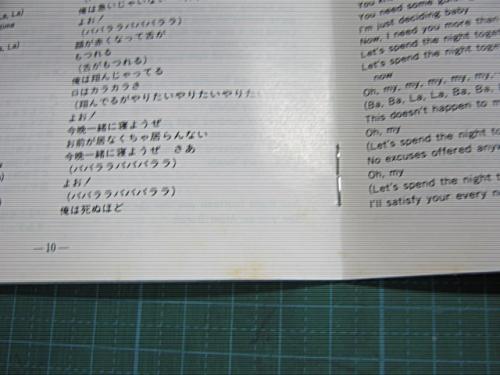 La, La)
俺は
よお！
（ババララババババララ）
顔が赤くなって舌が
もつれる
（舌がもつれる）
俺は翔んじゃってる
口はカラカラさ
（翔んでるがやりたいやりたいやりた
よお！
今晩一緒に寝ようぜ
お前が居なくちゃ居らんない
今晩一緒に寝ようぜ　さあ
（ババララババババララ）
よお！
（ババララババババララ）
俺は死ぬほど
—10—
You need some
I'm just deciding baby
Now, I need you more than
Let's spend the night toget
Let's spend the night toge
now
Oh, my, my, my, my, my,
(Ba, Ba, La, La, Ba, Ba,
This doesn't happen to m
Oh, my
(Let's spend the night to
No excuses offered anyw
Oh, my
(Let's spend the night t
I'll satisfy your every n